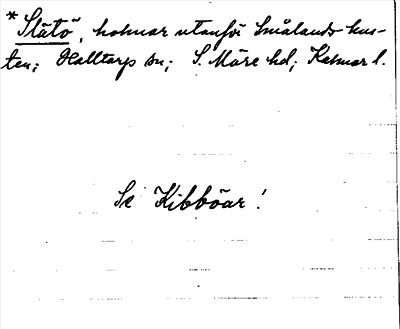 * Slätö, holmar utanför Smålands kus-
ten; Halltorp sn; S. Möre hd; Kalmar l.
Se Kibböar!